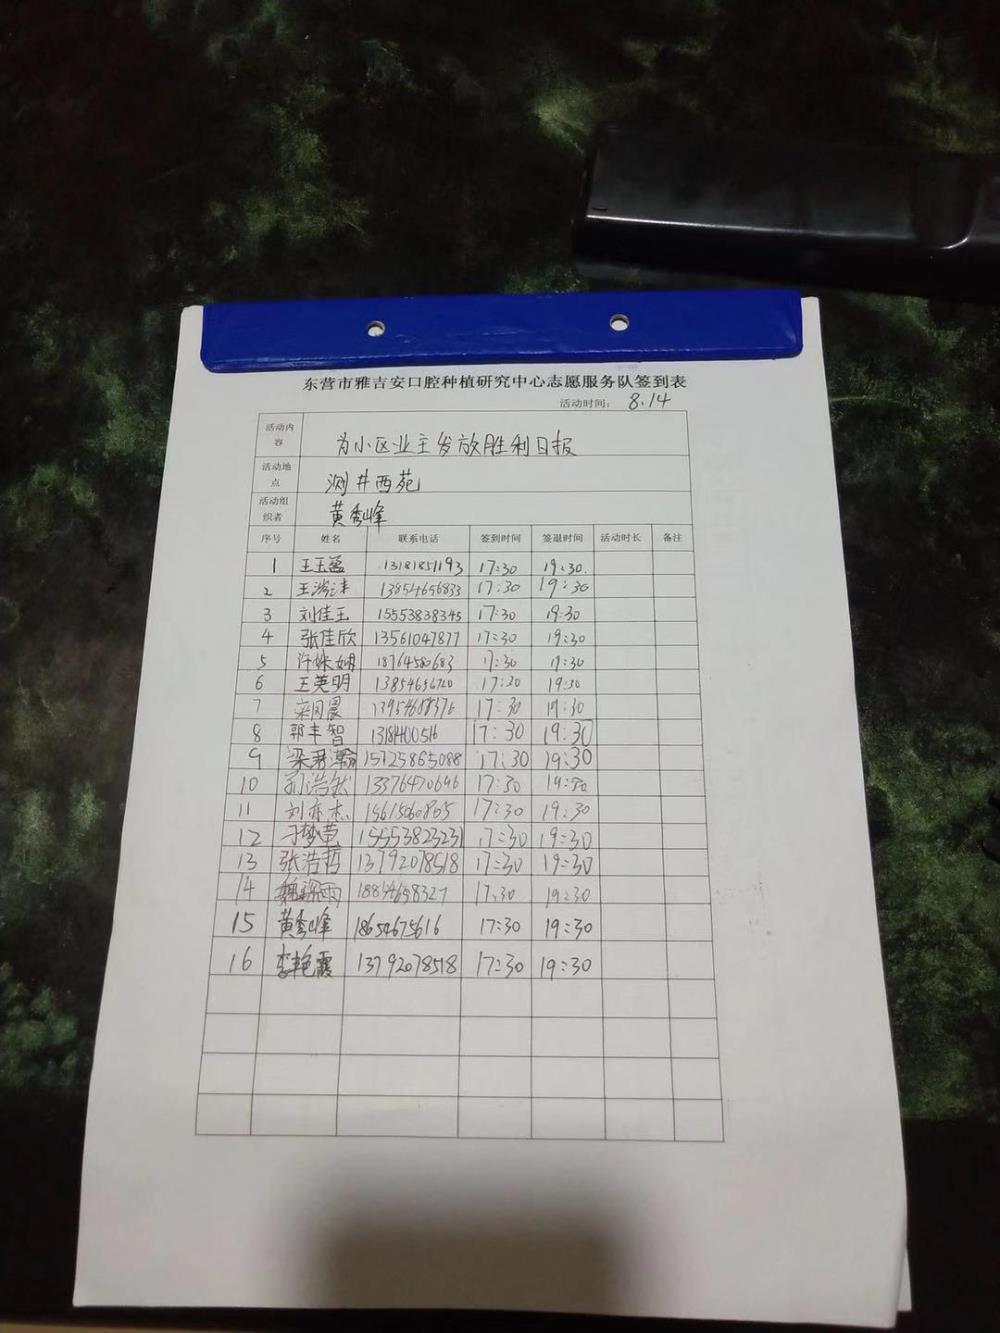 东营市雅吉安口腔种植研究中心志愿服务队签到表
活动时间: 8.14
活动内容 为小区业主发放胜利日报
活动地点 测井西苑
活动组织者 黄秀峰
序号 姓名 联系电话 签到时间 签退时间 活动时长 备注
1 王玉 13181851193 17:30 19:30.
2 王 13854656833 17:30 19:30
3 刘佳玉 15553838345 17:30 19:30
4 张佳欣 13561047877 17:30 19:30
5 许姝娴 18764580683 17:30 19:30
6 王英明 13854656720 17:30 19:30
7 17:30 19:30
8 郭丰智 1318400516 17:30 19:30
9 梁君瀚 15725865088 17:30 19:30
10 孙浩然 13376470696 17:30 19:30
11 刘亦杰 15615060805 17:30 19:30
12 刁梦莞 15553823231 17:30 19:30
13 张浩哲 13792078518 17:30 19:30
14 雨 18854658327 17:30 19:30
15 黄秀峰 18654675616 17:30 19:30
16 李艳霞 13792078518 17:30 19:30